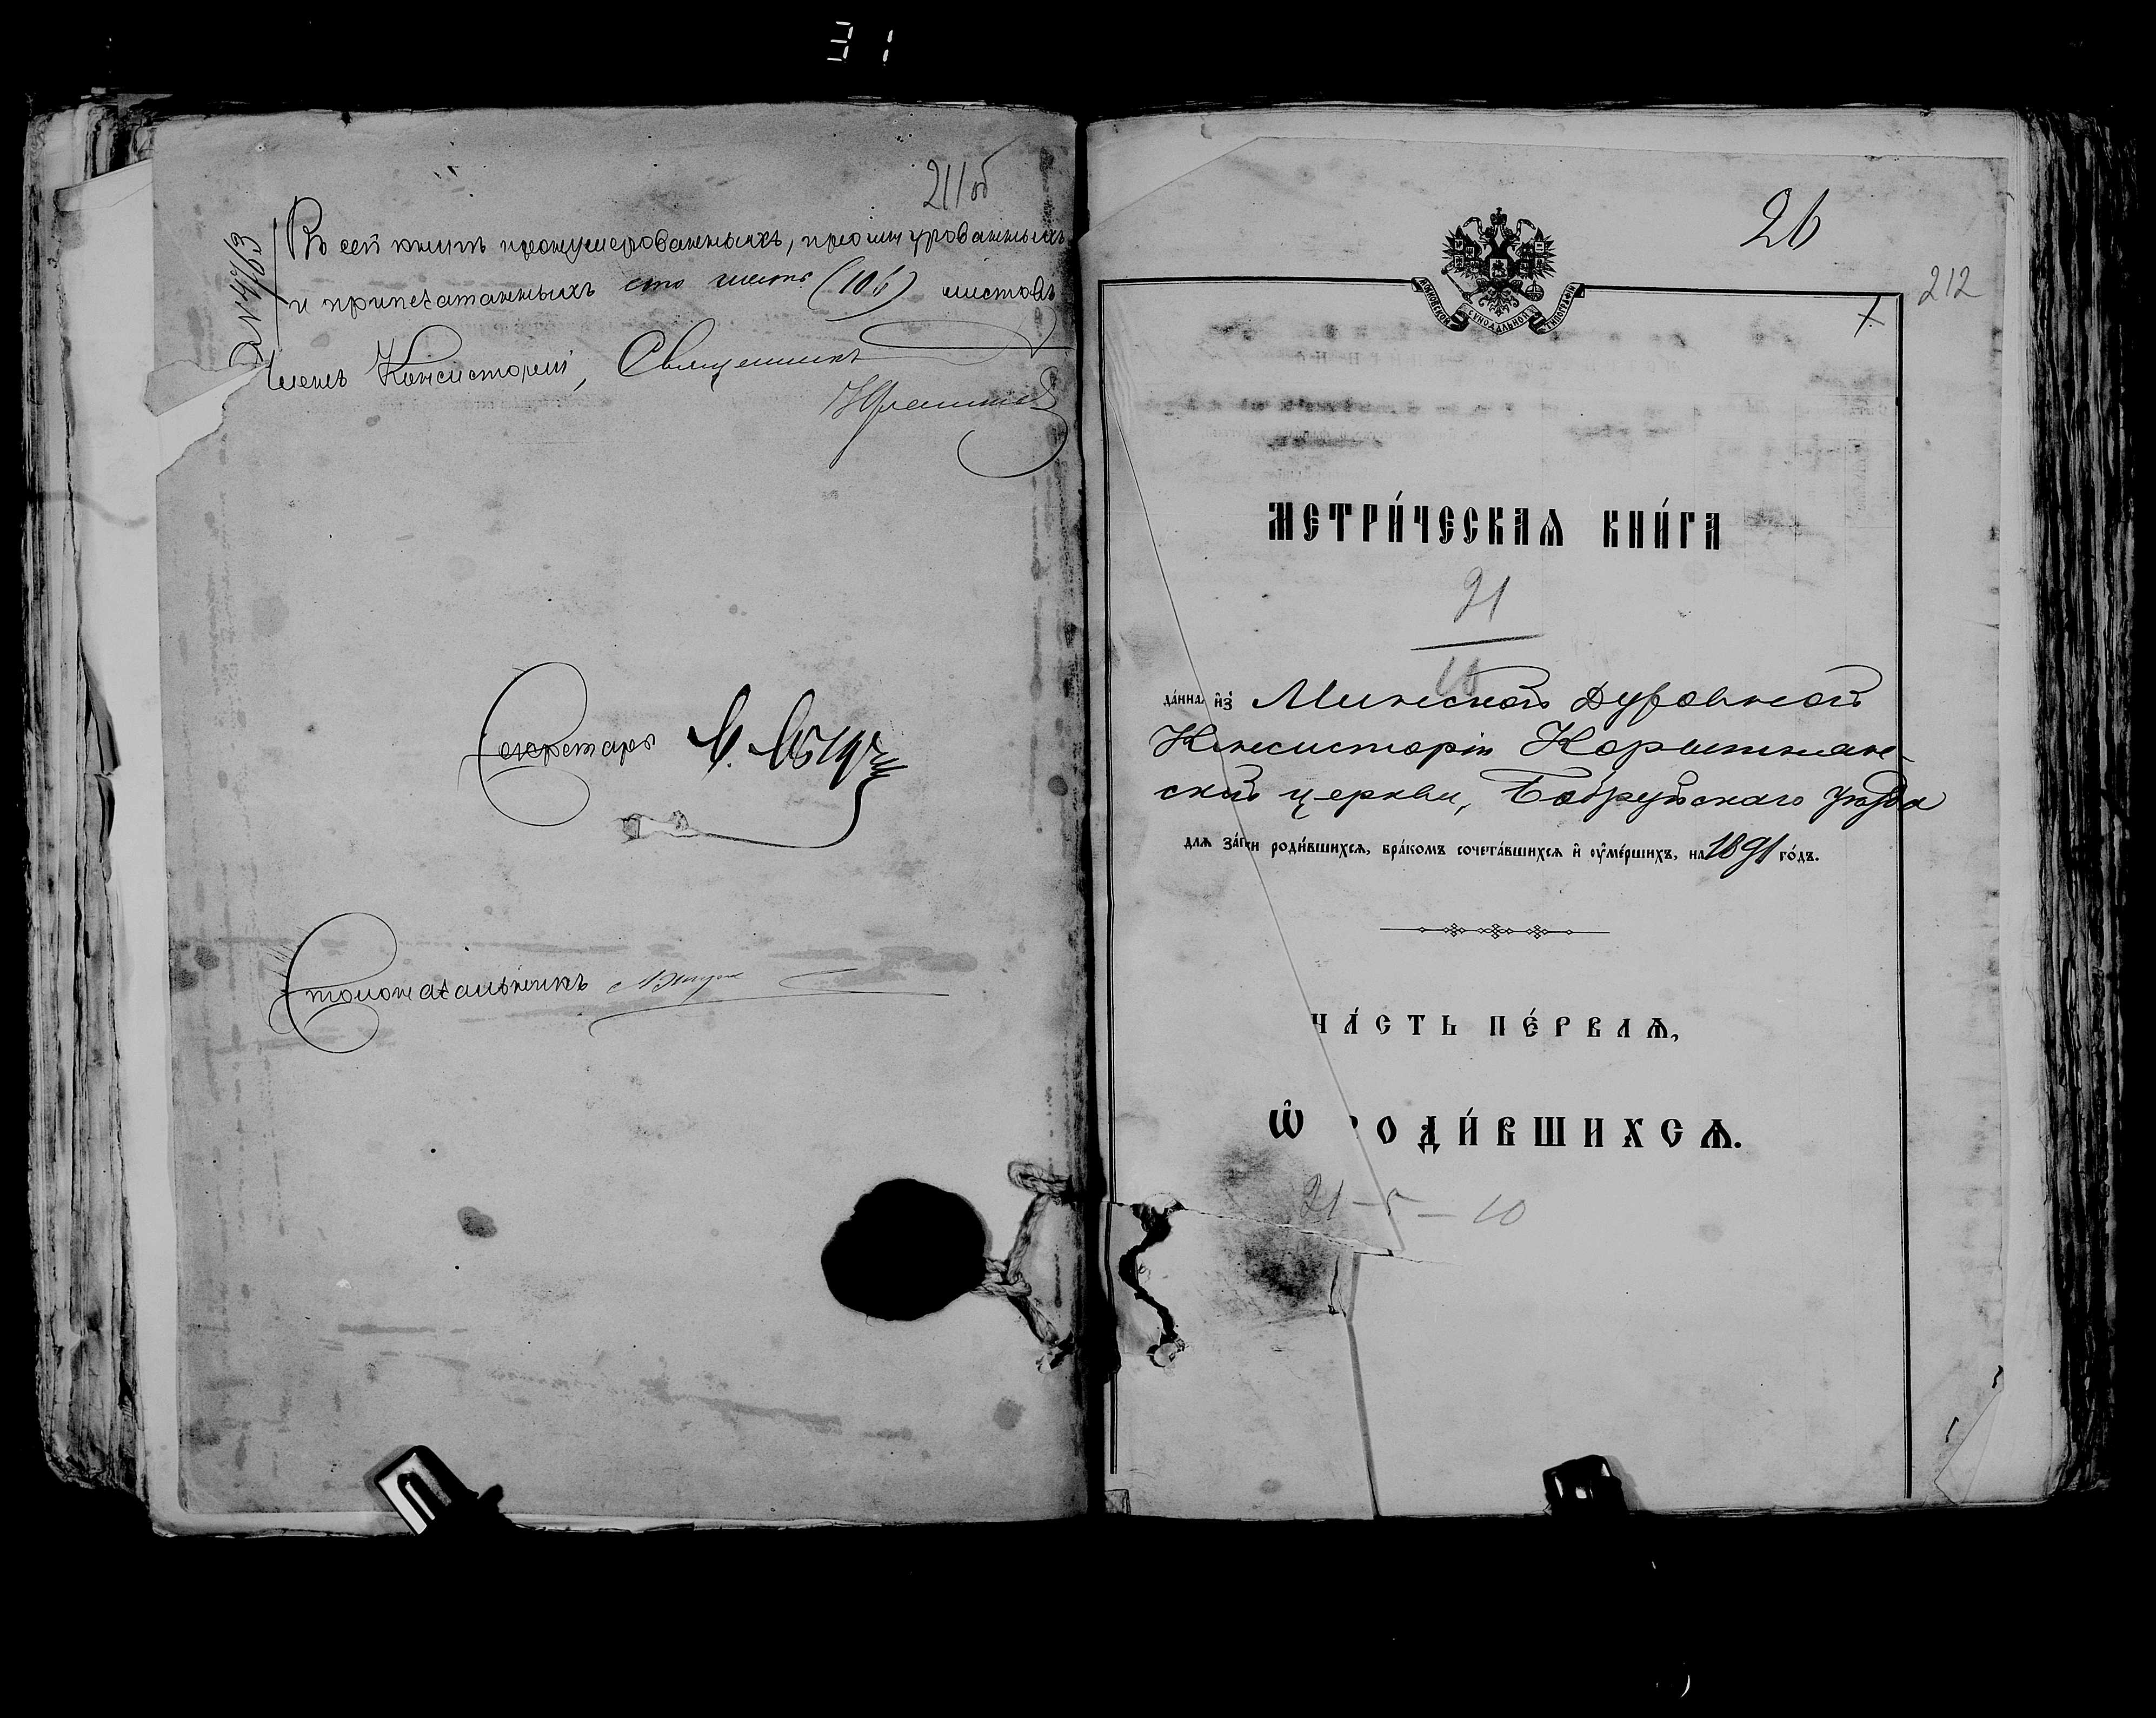 31
211об
№ 4463
Въ сей книгѣ пронумерованныхъ, прошнурованныхъ
и припечатанныхъ сто шесть (106) листовъ
Членъ Консисторіи, Священникъ
Секретарь
Столоначальникъ
26
212
МОСКОВСКОЙ СѴНОДАЛЬНОЙ ТИПОГРАФІИ
МЕТРИ́ЧЕСКАѦ КНИ́ГА
91
10
да́нна и҆з̾ Минской Духовной
Консисторіи Корытнян-
ской церкви, Бобруйскаго уѣзда
длѧ за́пи роди́вшихсѧ, бра́комъ сочета́вшихсѧ и҆ ᲂу҆ме́ршихъ, на 1891 го́дъ.
ЧА́СТЬ ПЕ́РВАѦ,
Ѡ҆ РОДИ́ВШИХСѦ.
21 – 5 – 10